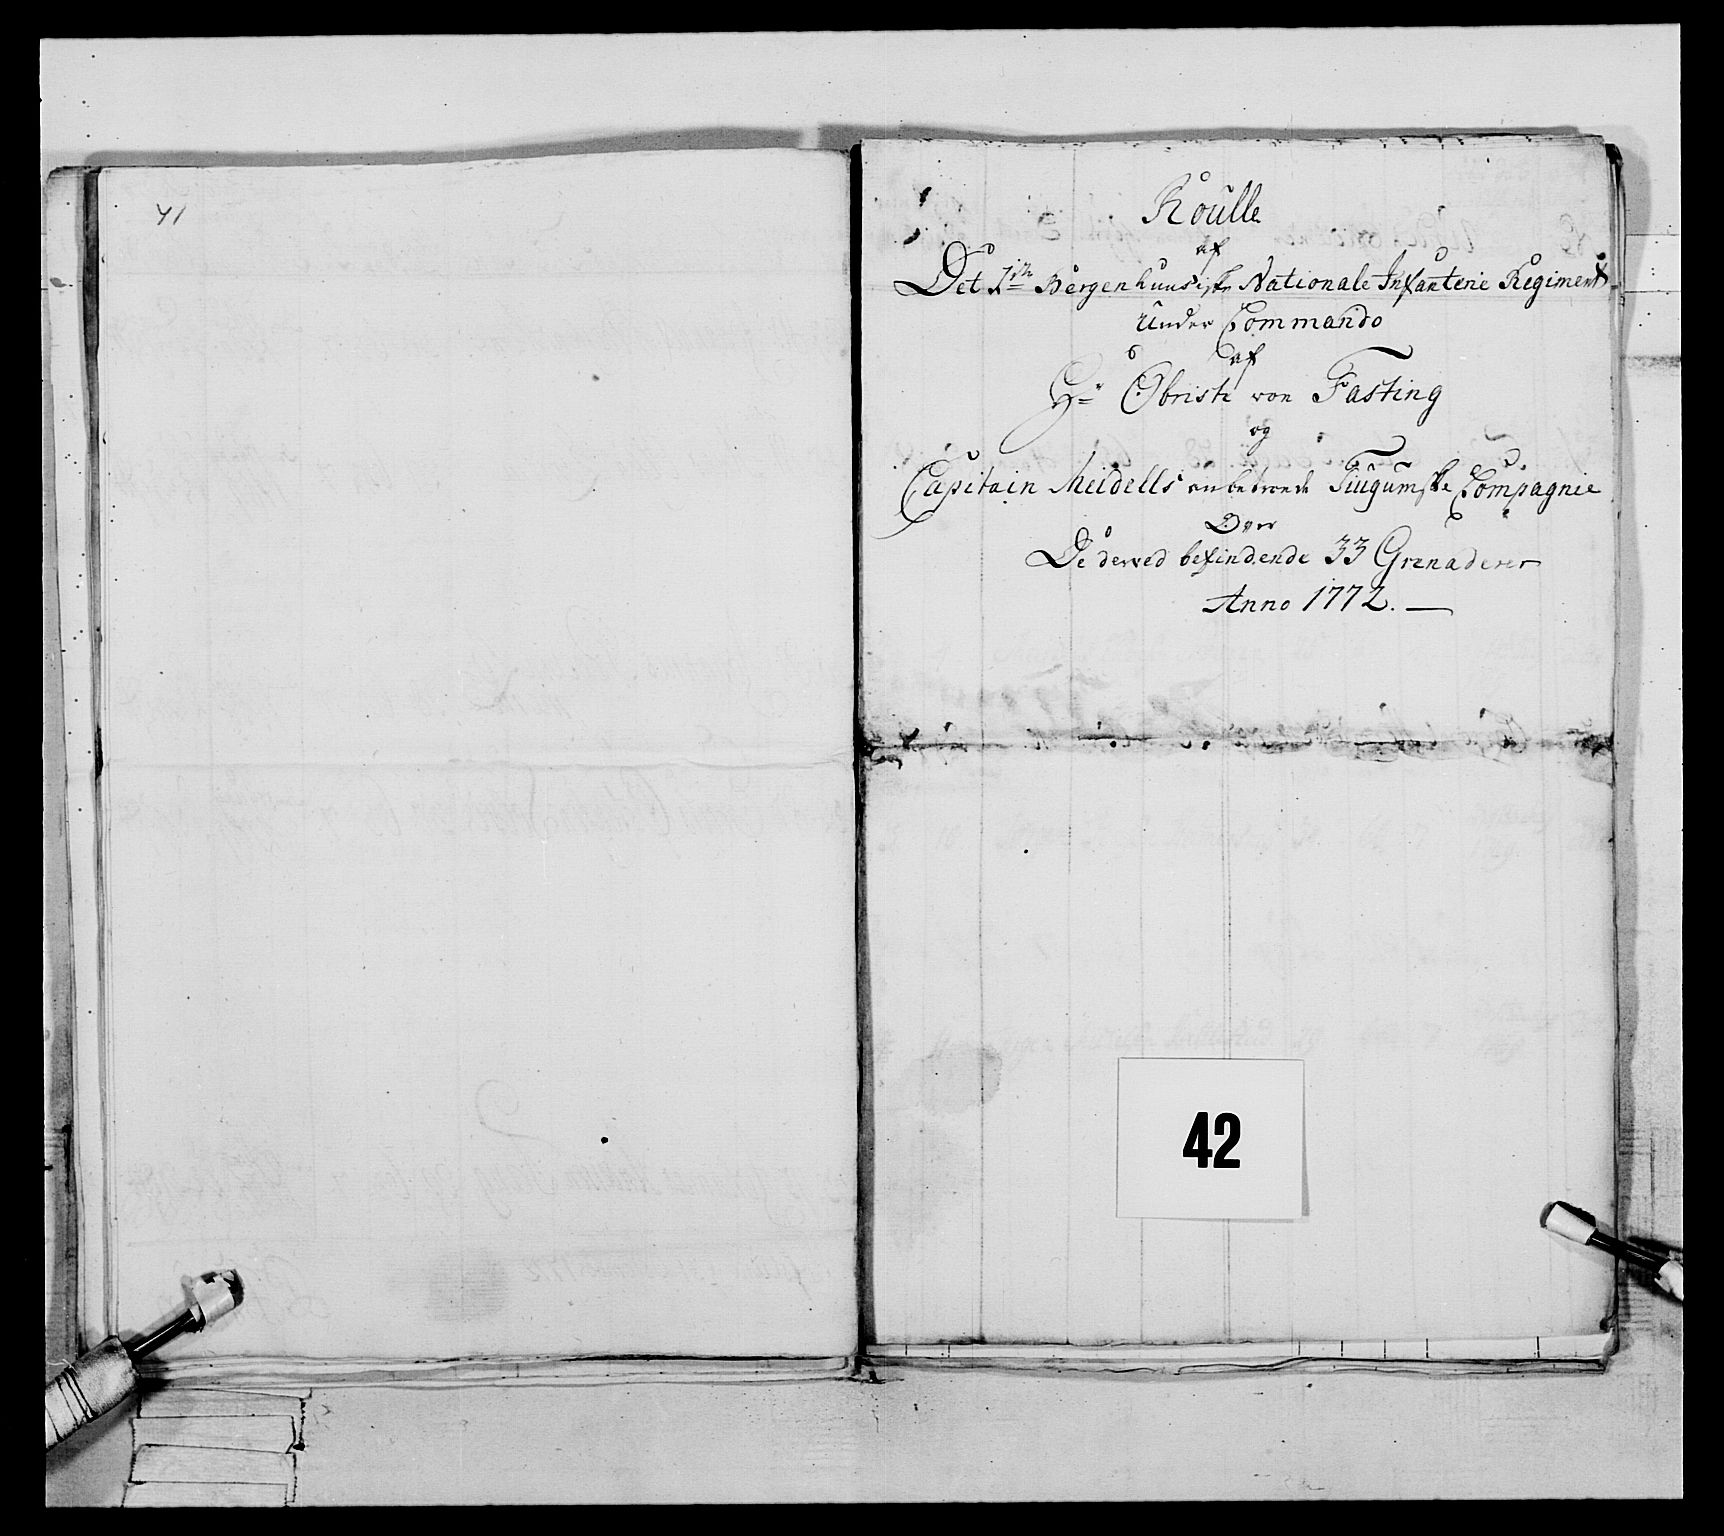 41
Roulle
af
Det 1ste Bergenhuusiske Nationale Infanterie Regiment
Under Commando
af
Hr Obriste von Fasting
og
Capitain Meidells anbetroede Tiugumske Compagnie
Over
De derved befindende 33 Grenaderer
Anno 1772.
42